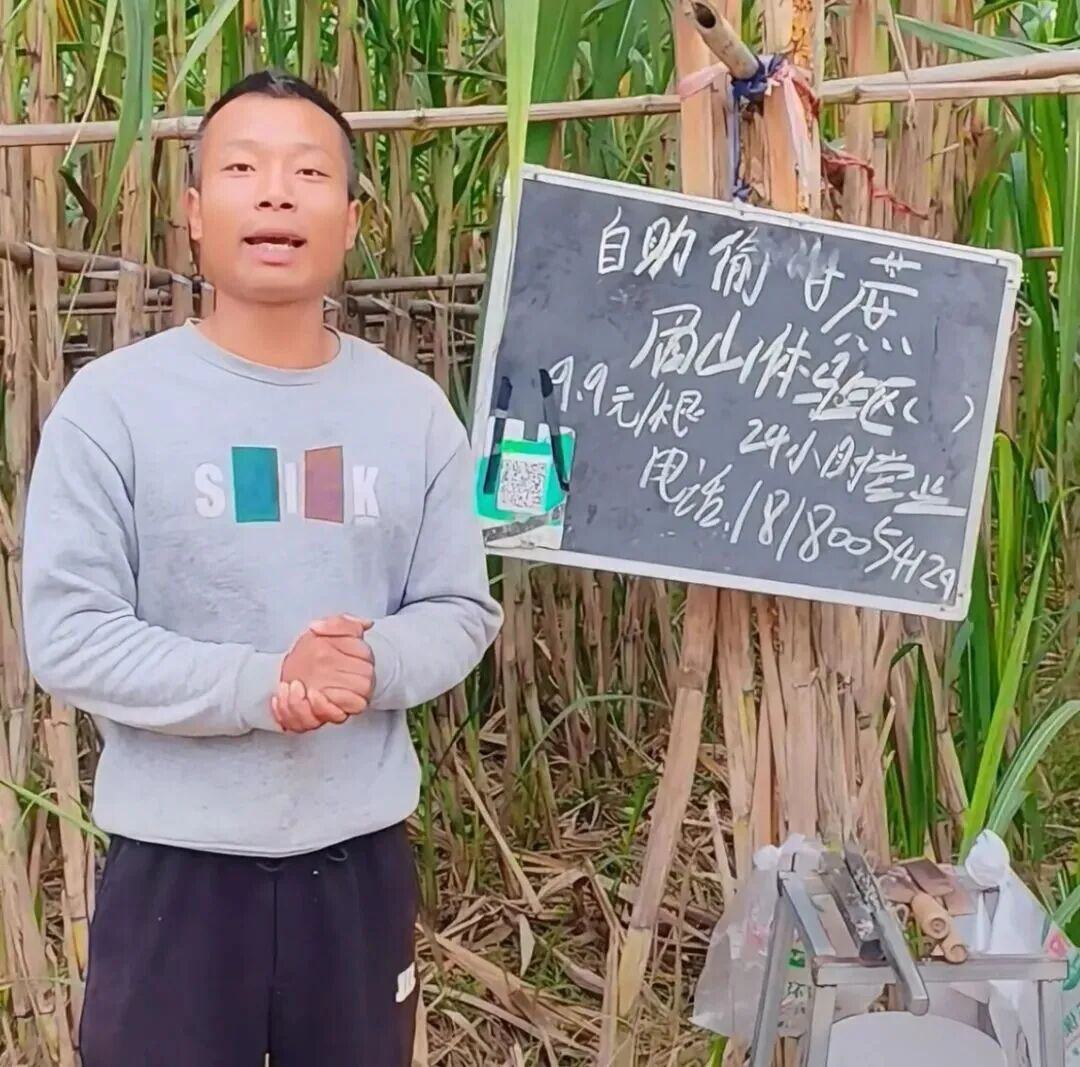 自助偷甘蔗
眉山体验区( )
9.9元/根
24小时营业
电话.18180054129
S I K